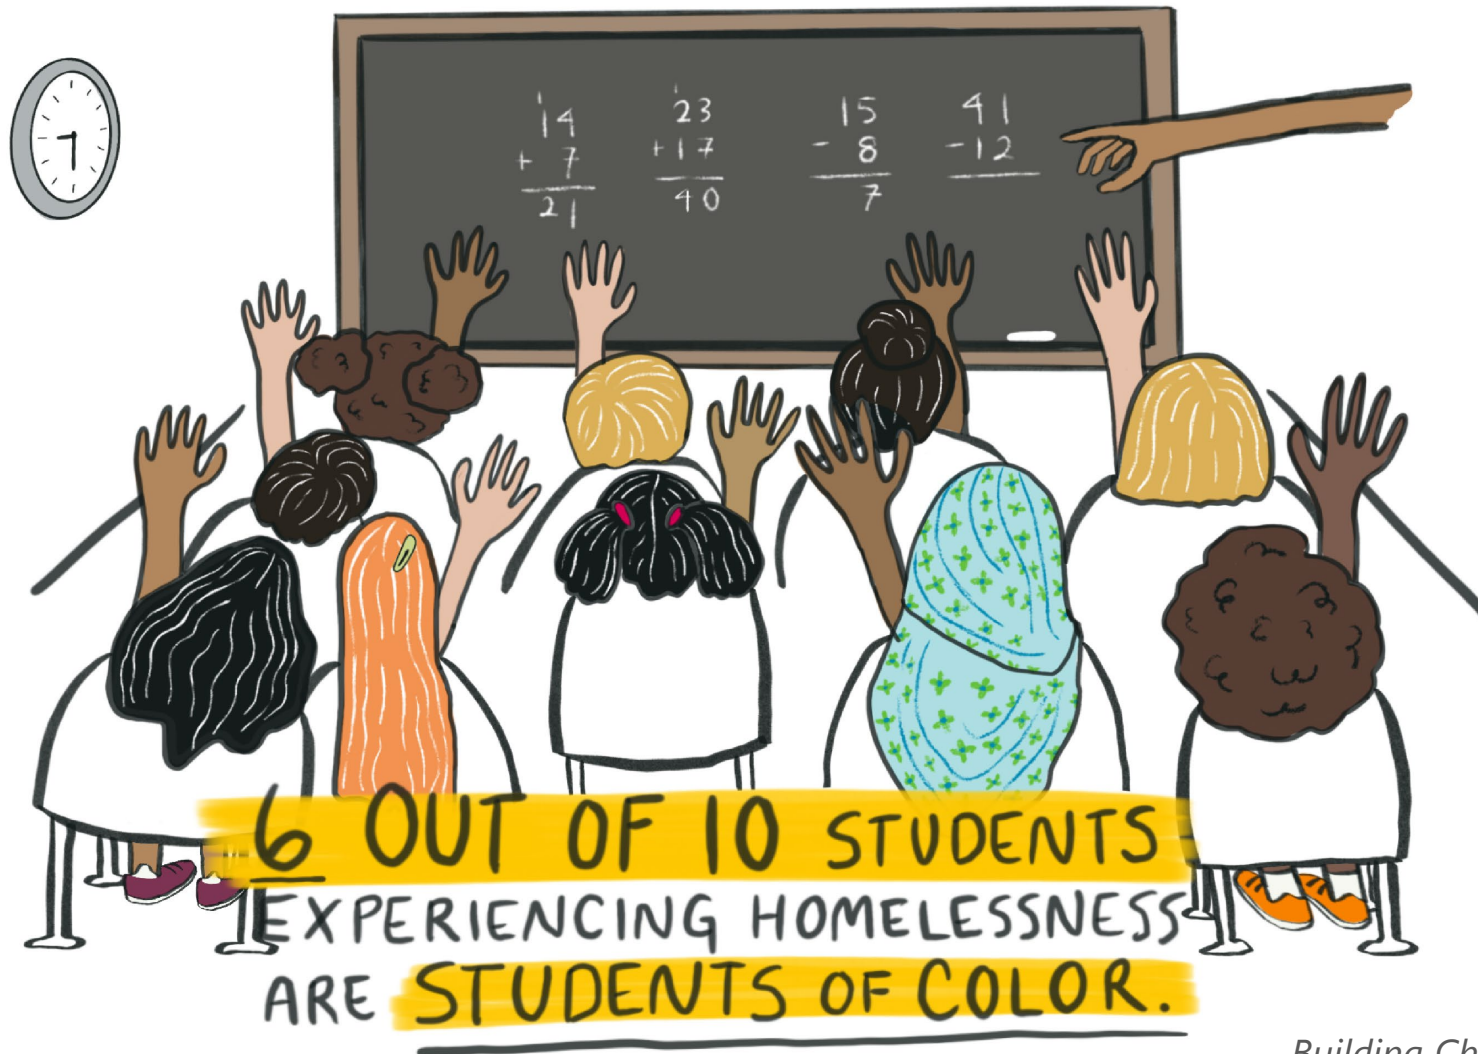 14 23 15 41
+ 7 +17 - 8 -12
21 40 7
6 OUT OF 10 STUDENTS
EXPERIENCING HOMELESSNESS
ARE STUDENTS OF COLOR.
Building